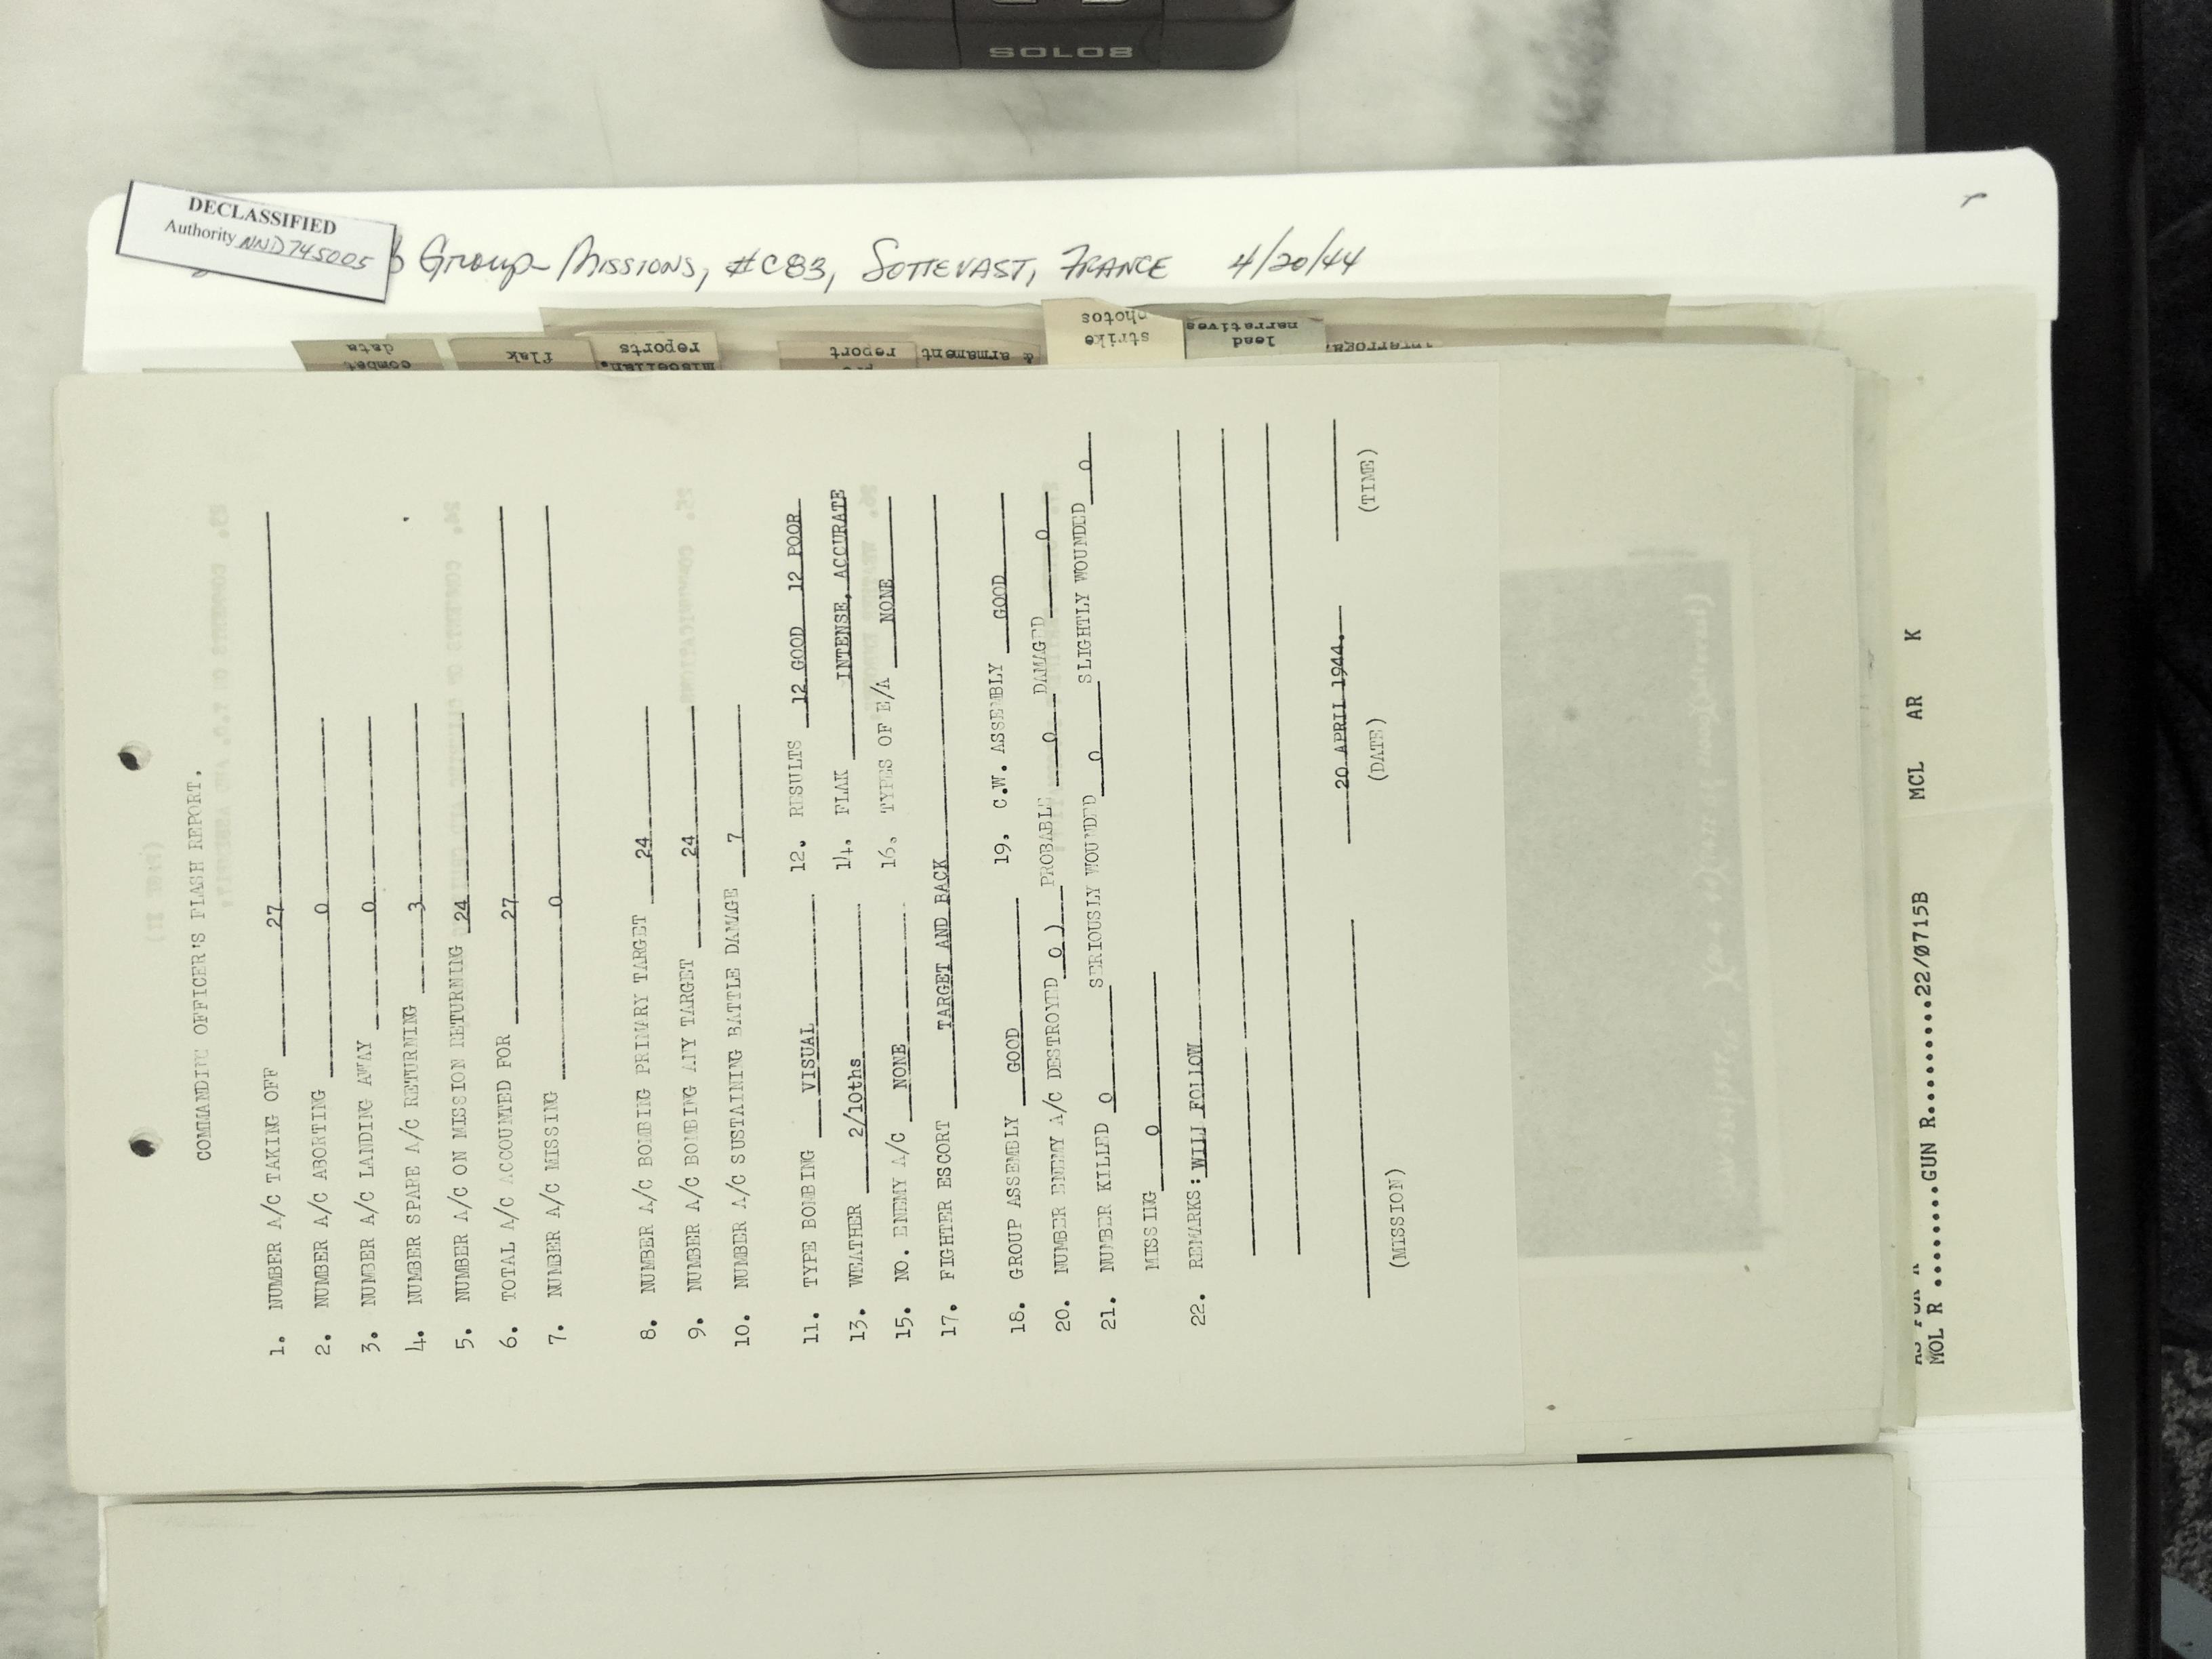 SOLO8
DECLASSIFIED
Authority NND745005
Group Missions, #C83, SOTTEVAST, FRANCE 4/20/44
combat data
flak
miscellan. reports
report
& armament
strike photos
lead narratives
COMMANDING OFFICER'S FLASH REPORT.
1. NUMBER A/C TAKING OFF 27
2. NUMBER A/C ABORTING 0
3. NUMBER A/C LANDING AWAY 0
4. NUMBER SPARE A/C RETURNING 3
5. NUMBER A/C ON MISSION RETURNING 24
6. TOTAL A/C ACCOUNTED FOR 27
7. NUMBER A/C MISSING 0
8. NUMBER A/C BOMBING PRIMARY TARGET 24
9. NUMBER A/C BOMBING ANY TARGET 24
10. NUMBER A/C SUSTAINING BATTLE DAMAGE 7
11. TYPE BOMBING VISUAL 12. RESULTS 12 GOOD 12 POOR
13. WEATHER 2/10ths 14. FLAK INTENSE, ACCURATE
15. NO. ENEMY A/C NONE 16. TYPES OF E/A NONE
17. FIGHTER ESCORT TARGET AND BACK
18. GROUP ASSEMBLY GOOD 19. C.W. ASSEMBLY GOOD
20. NUMBER ENEMY A/C DESTROYED 0 ) PROBABLE 0 DAMAGED 0
21. NUMBER KILLED 0 SERIOUSLY WOUNDED 0 SLIGHTLY WOUNDED 0
MISSING 0
22. REMARKS: WILL FOLLOW
20 APRIL 1944.
(MISSION) (DATE) (TIME)
MOL R ........GUN R..........22/0715B MCL AR K